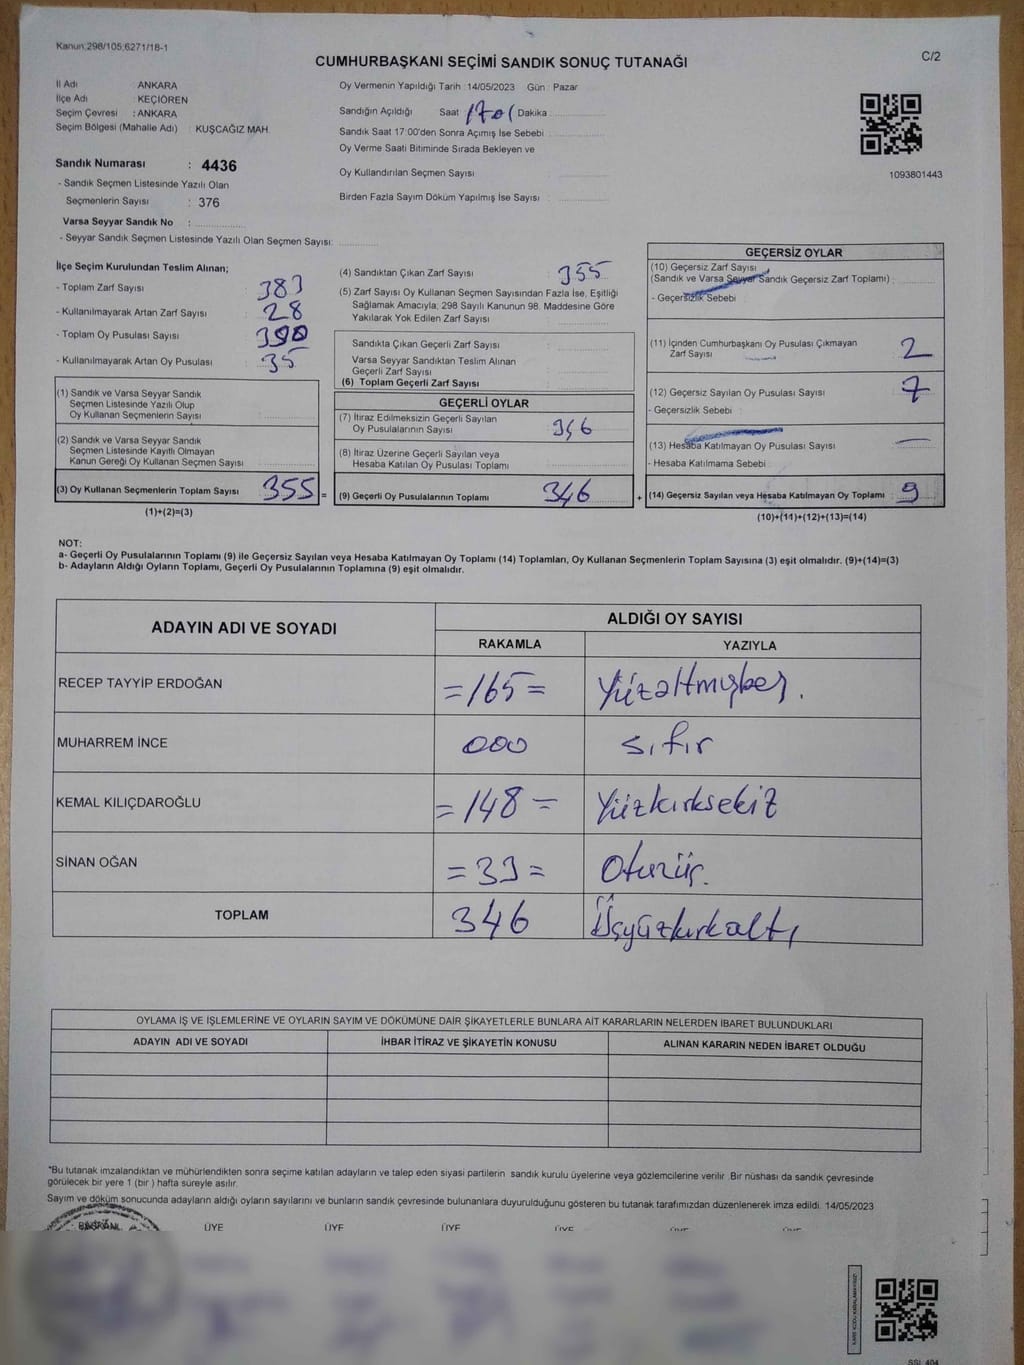 Kanun:298/105;6271/18-1
C/2
CUMHURBAŞKANI SEÇİMİ SANDIK SONUÇ TUTANAĞI
İl Adı : ANKARA
İlçe Adı : KEÇİÖREN
Seçim Çevresi : ANKARA
Seçim Bölgesi (Mahalle Adı) : KUŞCAĞIZ MAH.
Sandık Numarası : 4436
- Sandık Seçmen Listesinde Yazılı Olan
Seçmenlerin Sayısı : 376
Varsa Seyyar Sandık No :
- Seyyar Sandık Seçmen Listesinde Yazılı Olan Seçmen Sayısı:
Oy Vermenin Yapıldığı Tarih : 14/05/2023 Gün : Pazar
Sandığın Açıldığı Saat 1701 Dakika
Sandık Saat 17:00'den Sonra Açımış İse Sebebi
Oy Verme Saati Bitiminde Sırada Bekleyen ve
Oy Kullandırılan Seçmen Sayısı :
Birden Fazla Sayım Döküm Yapılmış İse Sayısı :
1093801443
İlçe Seçim Kurulundan Teslim Alınan;
- Toplam Zarf Sayısı : 383
- Kullanılmayarak Artan Zarf Sayısı : 28
- Toplam Oy Pusulası Sayısı : 390
- Kullanılmayarak Artan Oy Pusulası : 35
(1) Sandık ve Varsa Seyyar Sandık
Seçmen Listesinde Yazılı Olup
Oy Kullanan Seçmenlerin Sayısı :
(2) Sandık ve Varsa Seyyar Sandık
Seçmen Listesinde Kayıtlı Olmayan
Kanun Gereği Oy Kullanan Seçmen Sayısı :
(3) Oy Kullanan Seçmenlerin Toplam Sayısı : 355 =
(1)+(2)=(3)
(4) Sandıktan Çıkan Zarf Sayısı : 355
(5) Zarf Sayısı Oy Kullanan Seçmen Sayısından Fazla İse, Eşitliği
Sağlamak Amacıyla, 298 Sayılı Kanunun 98. Maddesine Göre
Yakılarak Yok Edilen Zarf Sayısı :
Sandıkta Çıkan Geçerli Zarf Sayısı :
Varsa Seyyar Sandıktan Teslim Alınan
Geçerli Zarf Sayısı :
(6) Toplam Geçerli Zarf Sayısı :
GEÇERLİ OYLAR
(7) İtiraz Edilmeksizin Geçerli Sayılan
Oy Pusulalarının Sayısı : 346
(8) İtiraz Üzerine Geçerli Sayılan veya
Hesaba Katılan Oy Pusulası Toplamı :
(9) Geçerli Oy Pusulalarının Toplamı : 346 +
GEÇERSİZ OYLAR
(10) Geçersiz Zarf Sayısı
(Sandık ve Varsa Seyyar Sandık Geçersiz Zarf Toplamı) :
- Geçersizlik Sebebi :
(11) İçinden Cumhurbaşkanı Oy Pusulası Çıkmayan
Zarf Sayısı : 2
(12) Geçersiz Sayılan Oy Pusulası Sayısı : 7
- Geçersizlik Sebebi :
(13) Hesaba Katılmayan Oy Pusulası Sayısı :
- Hesaba Katılmama Sebebi :
(14) Geçersiz Sayılan veya Hesaba Katılmayan Oy Toplamı : 9
(10)+(11)+(12)+(13)=(14)
NOT:
a- Geçerli Oy Pusulalarının Toplamı (9) ile Geçersiz Sayılan veya Hesaba Katılmayan Oy Toplamı (14) Toplamları, Oy Kullanan Seçmenlerin Toplam Sayısına (3) eşit olmalıdır. (9)+(14)=(3)
b- Adayların Aldığı Oyların Toplamı, Geçerli Oy Pusulalarının Toplamına (9) eşit olmalıdır.
ADAYIN ADI VE SOYADI ALDIĞI OY SAYISI
RAKAMLA YAZIYLA
RECEP TAYYİP ERDOĞAN =165= Yüzaltmışbeş.
MUHARREM İNCE 000 sıfır
KEMAL KILIÇDAROĞLU =148= Yüzkırksekiz
SİNAN OĞAN =33= Otuzüç.
TOPLAM 346 Üçyüzkırkaltı
OYLAMA İŞ VE İŞLEMLERİNE VE OYLARIN SAYIM VE DÖKÜMÜNE DAİR ŞİKAYETLERLE BUNLARA AİT KARARLARIN NELERDEN İBARET BULUNDUKLARI
ADAYIN ADI VE SOYADI İHBAR İTİRAZ VE ŞİKAYETİN KONUSU ALINAN KARARIN NEDEN İBARET OLDUĞU
*Bu tutanak imzalandıktan ve mühürlendikten sonra seçime katılan adayların ve talep eden siyasi partilerin sandık kurulu üyelerine veya gözlemcilerine verilir. Bir nüshası da sandık çevresinde
görülecek bir yere 1 (bir) hafta süreyle asılır.
Sayım ve döküm sonucunda adayların aldığı oyların sayılarını ve bunların sandık çevresinde bulunanlara duyurulduğunu gösteren bu tutanak tarafımızdan düzenlenerek imza edildi. 14/05/2023
BAŞKAN ÜYE ÜYE ÜYE ÜYE ÜYE ÜYE